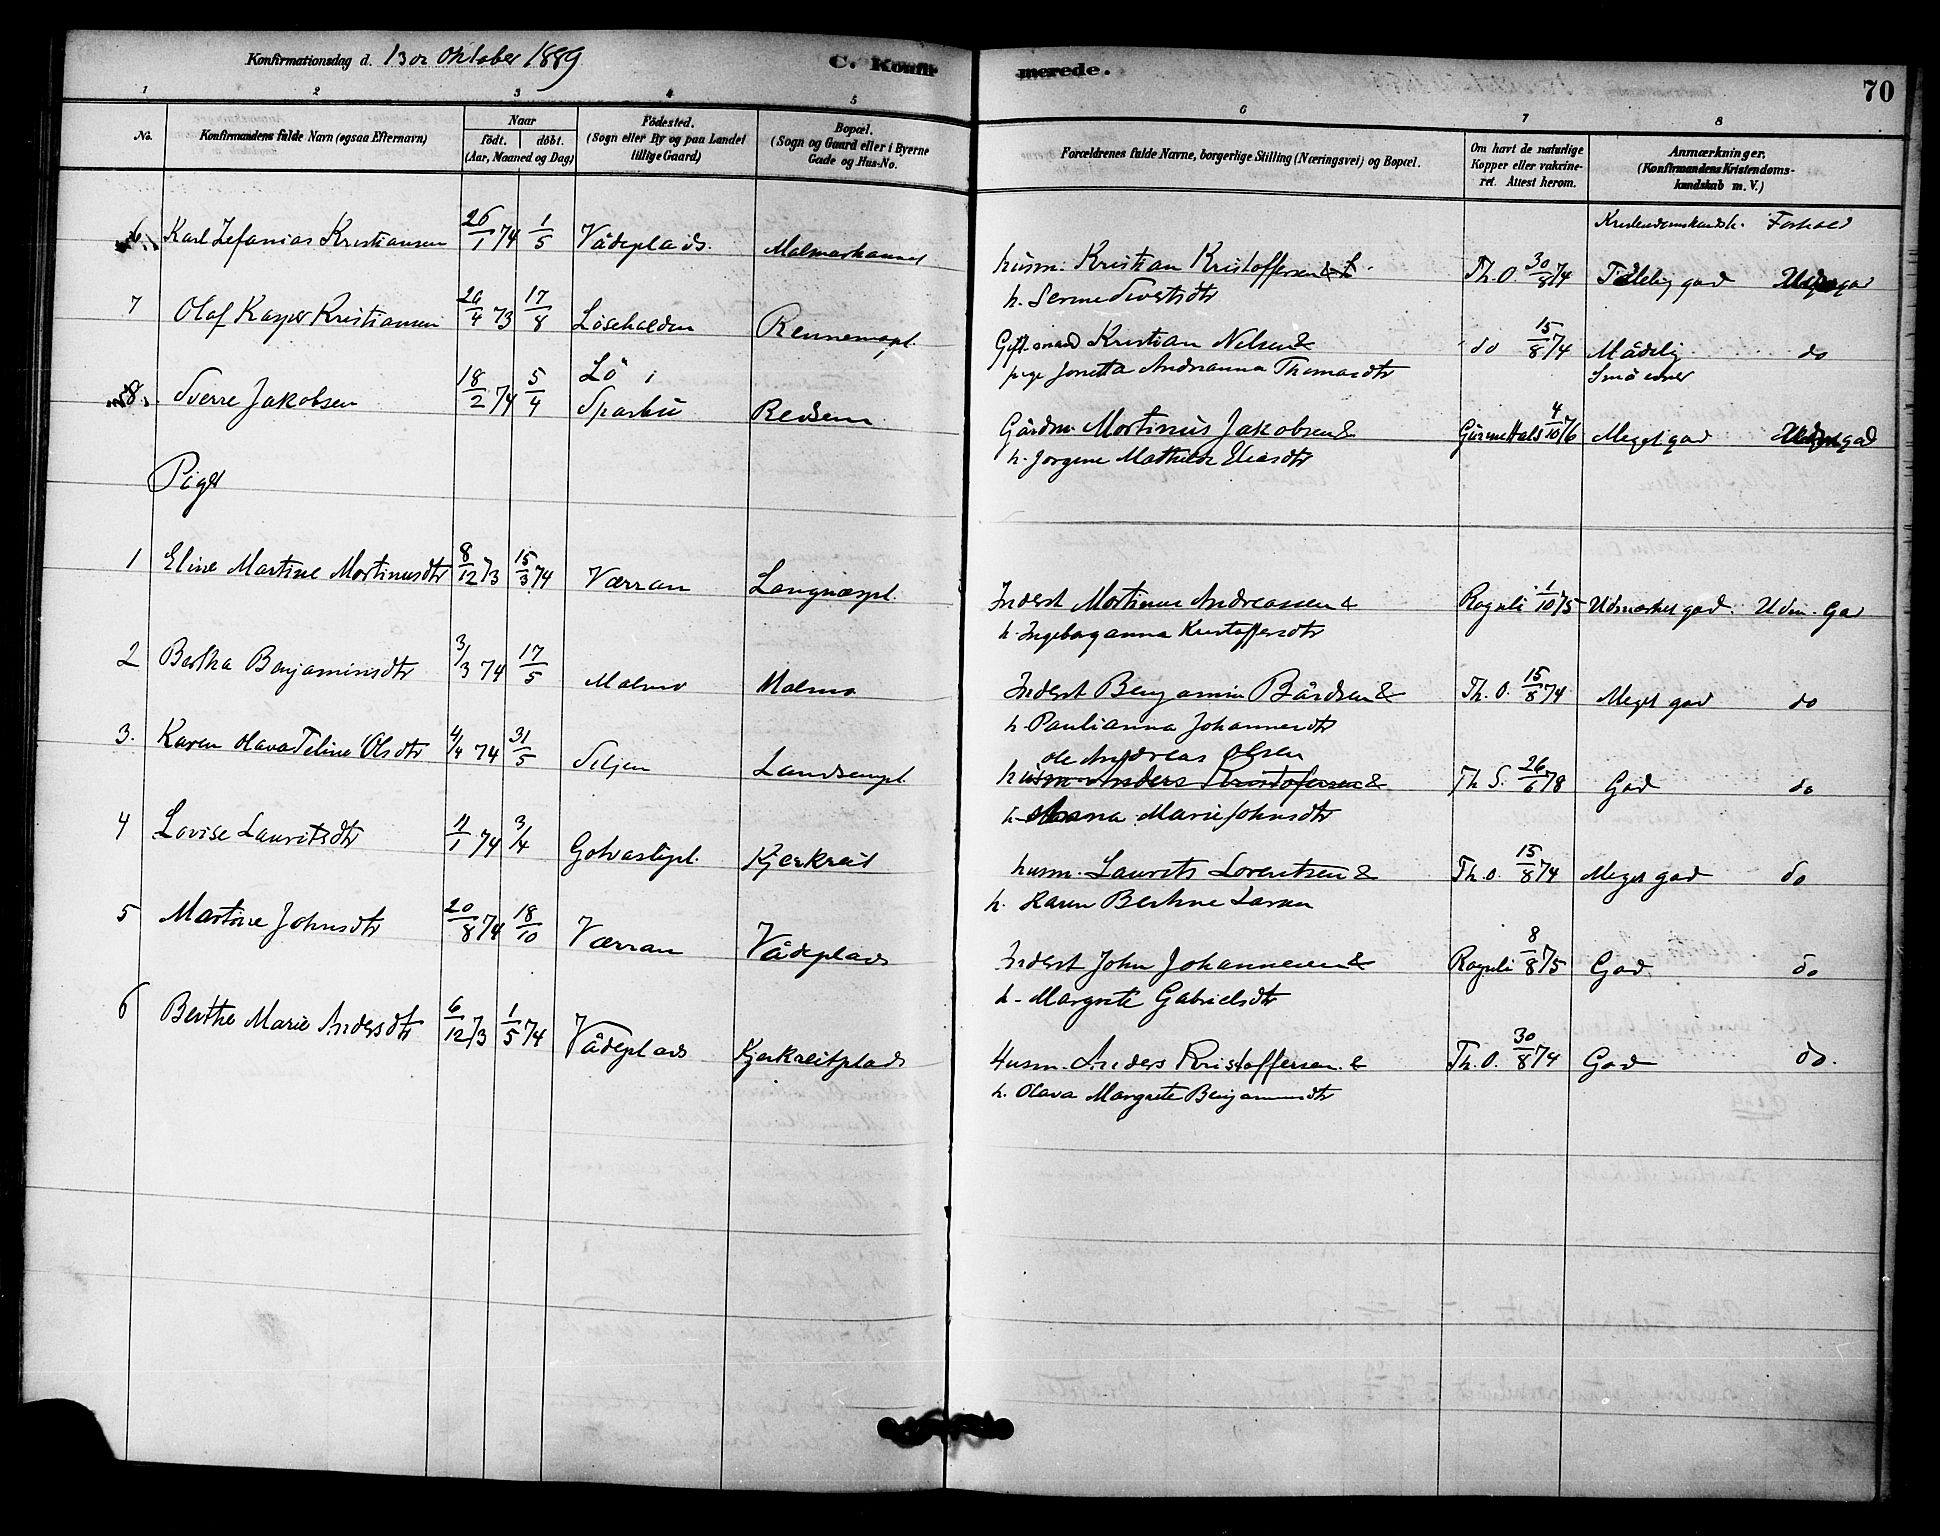 Konfirmationsdag d. 13de Oktober 1889
C. Konfirmerede.
70
1 2 3 4 5 6 7 8
No.
Konfirmandens fulde Navn (ogsaa Efternavn)
Naar
født. døbt.
(Aar, Maaned og Dag)
Fødested.
(Sogn eller By og paa Landet
tillige Gaard)
Bopæl.
(Sogn og Gaard eller i Byerne
Gade og Hus-No.
Forældrenes fulde Navne, borgerlige Stilling (Næringsvei) og Bopæl.
Om havt de naturlige
Kopper eller vakcine-
ret. Attest herom.
Anmærkninger.
(Konfirmandens Kristendoms-
kundskab m. V.)
Kristendomskundsk. Forhold
6 Karl Zefanias Kristiansen 26/1 74 1/5 Vådeplads. Malmarhaanes
husm. Kristian Kristoffersen & Th. O. 30/8 74 Tidlelig god
h. Serine Sivertsdtr
7 Olaf Kasper Kristiansen 20/4 73 17/8 Løsehalden Rennemspl.
Gift mand Kristian Nilsen & do 15/8 74 Mådelig do
pige Jonetta Andrianna Thomasdtr Små evner
8. Sverre Jakobsen 18/2 74 5/4 Lö i Sparbu
Gårdm. Martinus Jakobsen & 4/10 76 Meget god
h. Jørgine Mathilde Eliasdtr
Piger
1 Eline Martine Martinusdtr 8/12 73 15/3 74 Værran Langnæspl.
Inderst Martinus Andreassen & 1/10 75 Udmærket god. Udm. God
h. Ingeboranna Kristoffersdtr
2 Bertha Benjaminsdtr 3/3 74 17/5 Malmo Malmo
Inderst Benjamin Bårdsen & Th. O. 15/8 74 Meget god do
h. Paulianna Johannesdtr
3. Karen Olava Teline Olsdtr 4/4 74 31/5 Seljen Landsempl.
Ole Andreas Olsen
husm. Anders Kristofersen & Th S. 26/6 78 God do
h. Anna Marie Johnsdtr
4 Lovise Lauritsdtr 11/1 74 3/4 Golvastspl. Kjerkreit
husm. Laurits Lorentsen & Th. O. 15/8 74 Meget god do
h. Karen Berthine Larsen
5 Martine Johnsdtr 20/8 74 18/10 Værran Vådeplads
Inderst John Johannesen & 8/8 75 God do
h. Margrete Gabrielsdtr
6 Berthe Marie Andersdtr 6/12 73 1/5 74 Vådeplads Kjerkreitplads
Husm. Anders Kristoffersen & Th. O. 30/8 74 God do.
h. Olava Margrete Benjaminsdtr